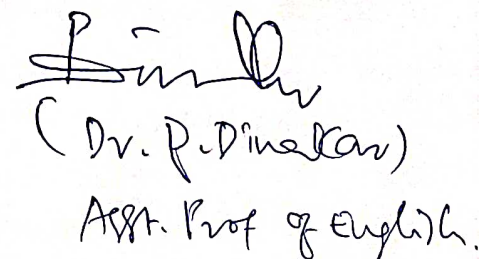 (Dr. P. Dinakar)
Asst. Prof of English.